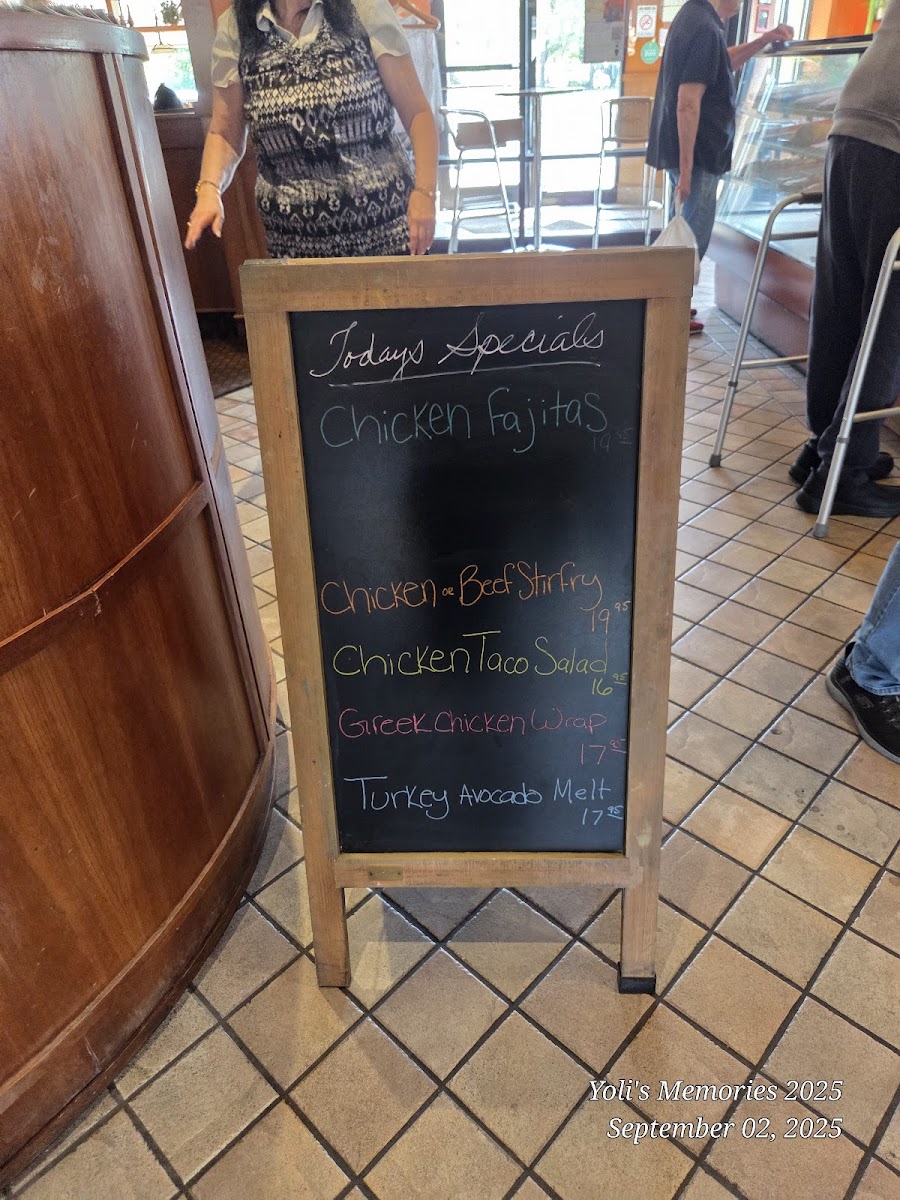 Todays Specials
Chicken Fajitas
19 95
Chicken or Beef Stirfry
19 95
Chicken Taco Salad
16 95
Greek Chicken Wrap
17 95
Turkey Avocado Melt
17 95
Yoli's Memories 2025
September 02, 2025